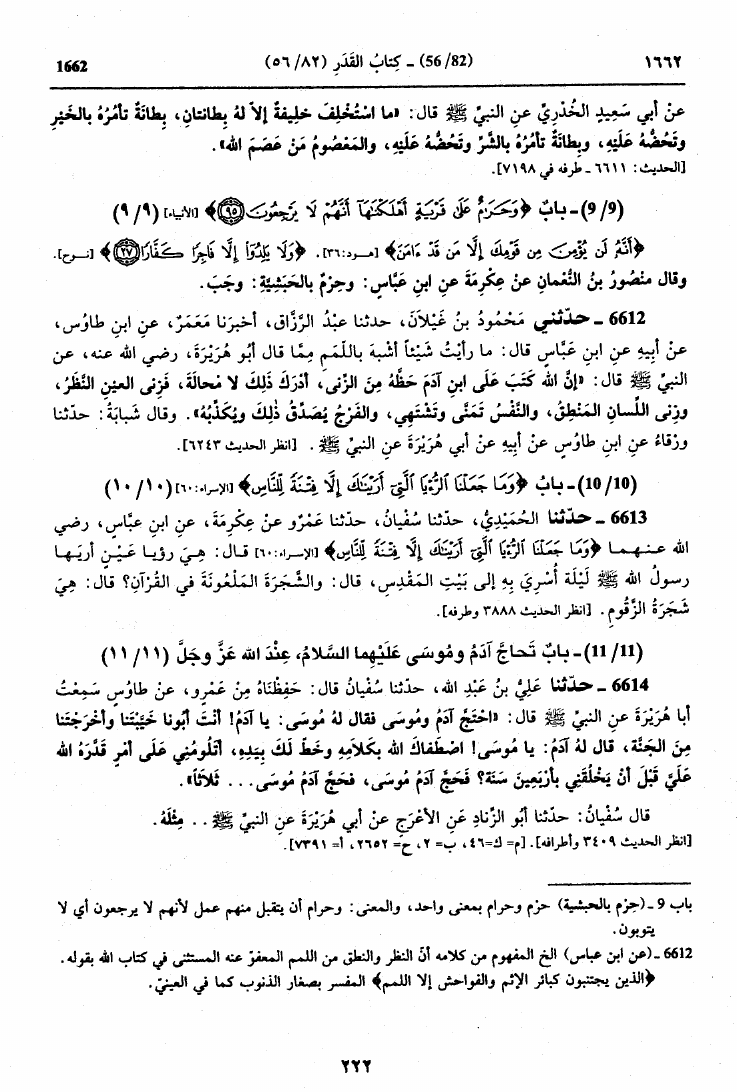 ١٦٦٢ (56/82) ـ كِتابُ القَدَرِ (٥٦/٨٢) 1662
عنْ أبي سَعِيدٍ الخُدْرِيِّ عنِ النبيِّ ﷺ قال: «ما اسْتُخْلِفَ خلِيفةٌ إلاَّ لهُ بِطانتانِ، بِطانَةٌ تأمُرُهُ بالخَيْرِ
وتَحُضُّهُ عَلَيْهِ، وبِطانَةٌ تأمُرُهُ بالشَّرِّ وتَحُضُّهُ عَلَيْهِ، والمَعْصُومُ مَنْ عَصَمَ الله».
[الحديث: ٦٦١١ ـ طرفه في ٧١٩٨].
(9/9)ـ بابٌ ﴿وَحَرَامٌ عَلَى قَرْيَةٍ أَهْلَكْنَاهَا أَنَّهُمْ لَا يَرْجِعُونَ ٩٥﴾ [الأنبياء] (٩/٩)
﴿أَنَّهُ لَن يُؤْمِنَ مِن قَوْمِكَ إِلَّا مَن قَدْ ءَامَنَ﴾ [هود:٣٦]. ﴿وَلَا يَلِدُوا إِلَّا فَاجِرًا كَفَّارًا ٢٧﴾ [نوح].
وقال منْصُورُ بنُ النُّعْمانِ عنْ عِكْرِمَةَ عنِ ابنِ عَبَّاسٍ: وحِرْمٌ بالحَبَشِيَّةِ: وجَبَ.
6612 ـ حدّثني مَحْمُودُ بنُ غَيْلاَنَ، حدثنا عبْدُ الرَّزَّاقِ، أخبرَنا مَعْمَرٌ، عنِ ابنِ طاوُسٍ،
عنْ أبِيهِ عنِ ابنِ عَبَّاسٍ قال: ما رأيْتُ شَيْئاً أشْبهَ باللَّمَمِ مِمَّا قال أبُو هُرَيْرَةَ، رضي الله عنه، عن
النبيِّ ﷺ قال: «إنَّ الله كَتَبَ عَلَى ابنِ آدَمَ حَظَّهُ مِنَ الزِّنى، أدْرَكَ ذَلِكَ لا مَحالَةَ، فَزِنى العيْنِ النَّظَرُ،
وزِنى اللِّسانِ المَنْطِقُ، والنَّفْسُ تَمَنَّى وتَشْتَهِي، والفَرْجُ يُصَدِّقُ ذٰلِكَ ويُكَذِّبُهُ». وقال شَبابَةُ: حدّثنا
ورْقاءُ عنِ ابنِ طاوُسٍ عنْ أبِيهِ عنْ أبي هُرَيْرَةَ عنِ النبيِّ ﷺ. [انظر الحديث ٦٢٤٣].
(10/10)ـ بابُ ﴿وَمَا جَعَلْنَا الرُّءْيَا الَّتِي أَرَيْنَاكَ إِلَّا فِتْنَةً لِّلنَّاسِ﴾ [الإسراء:٦٠] (١٠/١٠)
6613 ـ حدّثنا الحُمَيْدِيُّ، حدّثنا سُفْيانُ، حدّثنا عَمْرٌو عنْ عِكْرِمَةَ، عنِ ابنِ عبَّاسٍ، رضي
الله عنهما ﴿وَمَا جَعَلْنَا الرُّءْيَا الَّتِي أَرَيْنَاكَ إِلَّا فِتْنَةً لِّلنَّاسِ﴾ [الإسراء:٦٠] قال: هِيَ رؤيا عَيْنٍ أُرِيَها
رسولُ الله ﷺ لَيْلَةَ أُسْرِيَ بِهِ إلى بَيْتِ المَقْدِسِ، قال: والشَّجَرَةَ المَلْعُونَةَ في القُرْآنِ؟ قال: هِيَ
شَجَرَةُ الزَّقُومِ. [انظر الحديث ٣٨٨٨ وطرفه].
(11/11)ـ بابٌ تَحاجَّ آدَمُ ومُوسَى عَلَيْهِما السَّلامُ، عِنْدَ الله عَزَّ وجَلَّ (١١/١١)
6614 ـ حدّثنا عَلِيُّ بنُ عَبْدِ الله، حدّثنا سُفْيانُ قال: حَفِظْناهُ مِنْ عَمْرٍو، عنْ طاوُسٍ سَمِعْتُ
أبا هُرَيْرَةَ عنِ النبيِّ ﷺ قال: «احْتَجَّ آدَمُ ومُوسَى فقال لهُ مُوسَى: يا آدَمُ! أنْتَ أبُونا خَيَّبْتَنا وأخْرَجْتَنا
مِنَ الجَنَّةِ، قال لهُ آدَمُ: يا مُوسَى! اصْطَفاكَ الله بِكَلاَمِهِ وخَطَّ لَكَ بِيَدِهِ، أتَلُومُنِي عَلَى أمْرٍ قَدَّرَهُ الله
عَلَيَّ قَبْلَ أنْ يَخْلُقَنِي بأرْبَعِينَ سَنَةً؟ فَحَجَّ آدَمُ مُوسَى، فَحَجَّ آدَمُ مُوسَى... ثَلاثاً».
قال سُفْيانُ: حدّثنا أبُو الزِّنادِ عَنِ الأعْرَجِ عنْ أبي هُرَيْرَةَ عنِ النبيِّ ﷺ.. مِثْلَهُ.
[انظر الحديث ٣٤٠٩ وأطرافه]. [م= ك=٤٦، ب= ٢، ح= ٢٦٥٢، أ= ٧٣٩١].
باب 9 ـ(حِزم بالحبشية) حزم وحرام بمعنى واحد، والمعنى: وحرام أن يتقبل منهم عمل لأنهم لا يرجعون أي لا
يتوبون.
6612 ـ(عن ابن عباس) الخ المفهوم من كلامه أنّ النظر والنطق من اللمم المعفوّ عنه المستثنى في كتاب الله بقوله.
﴿الذين يجتنبون كبائر الإثم والفواحش إلا اللمم﴾ المفسر بصغار الذنوب كما في العينيّ.
٢٢٢